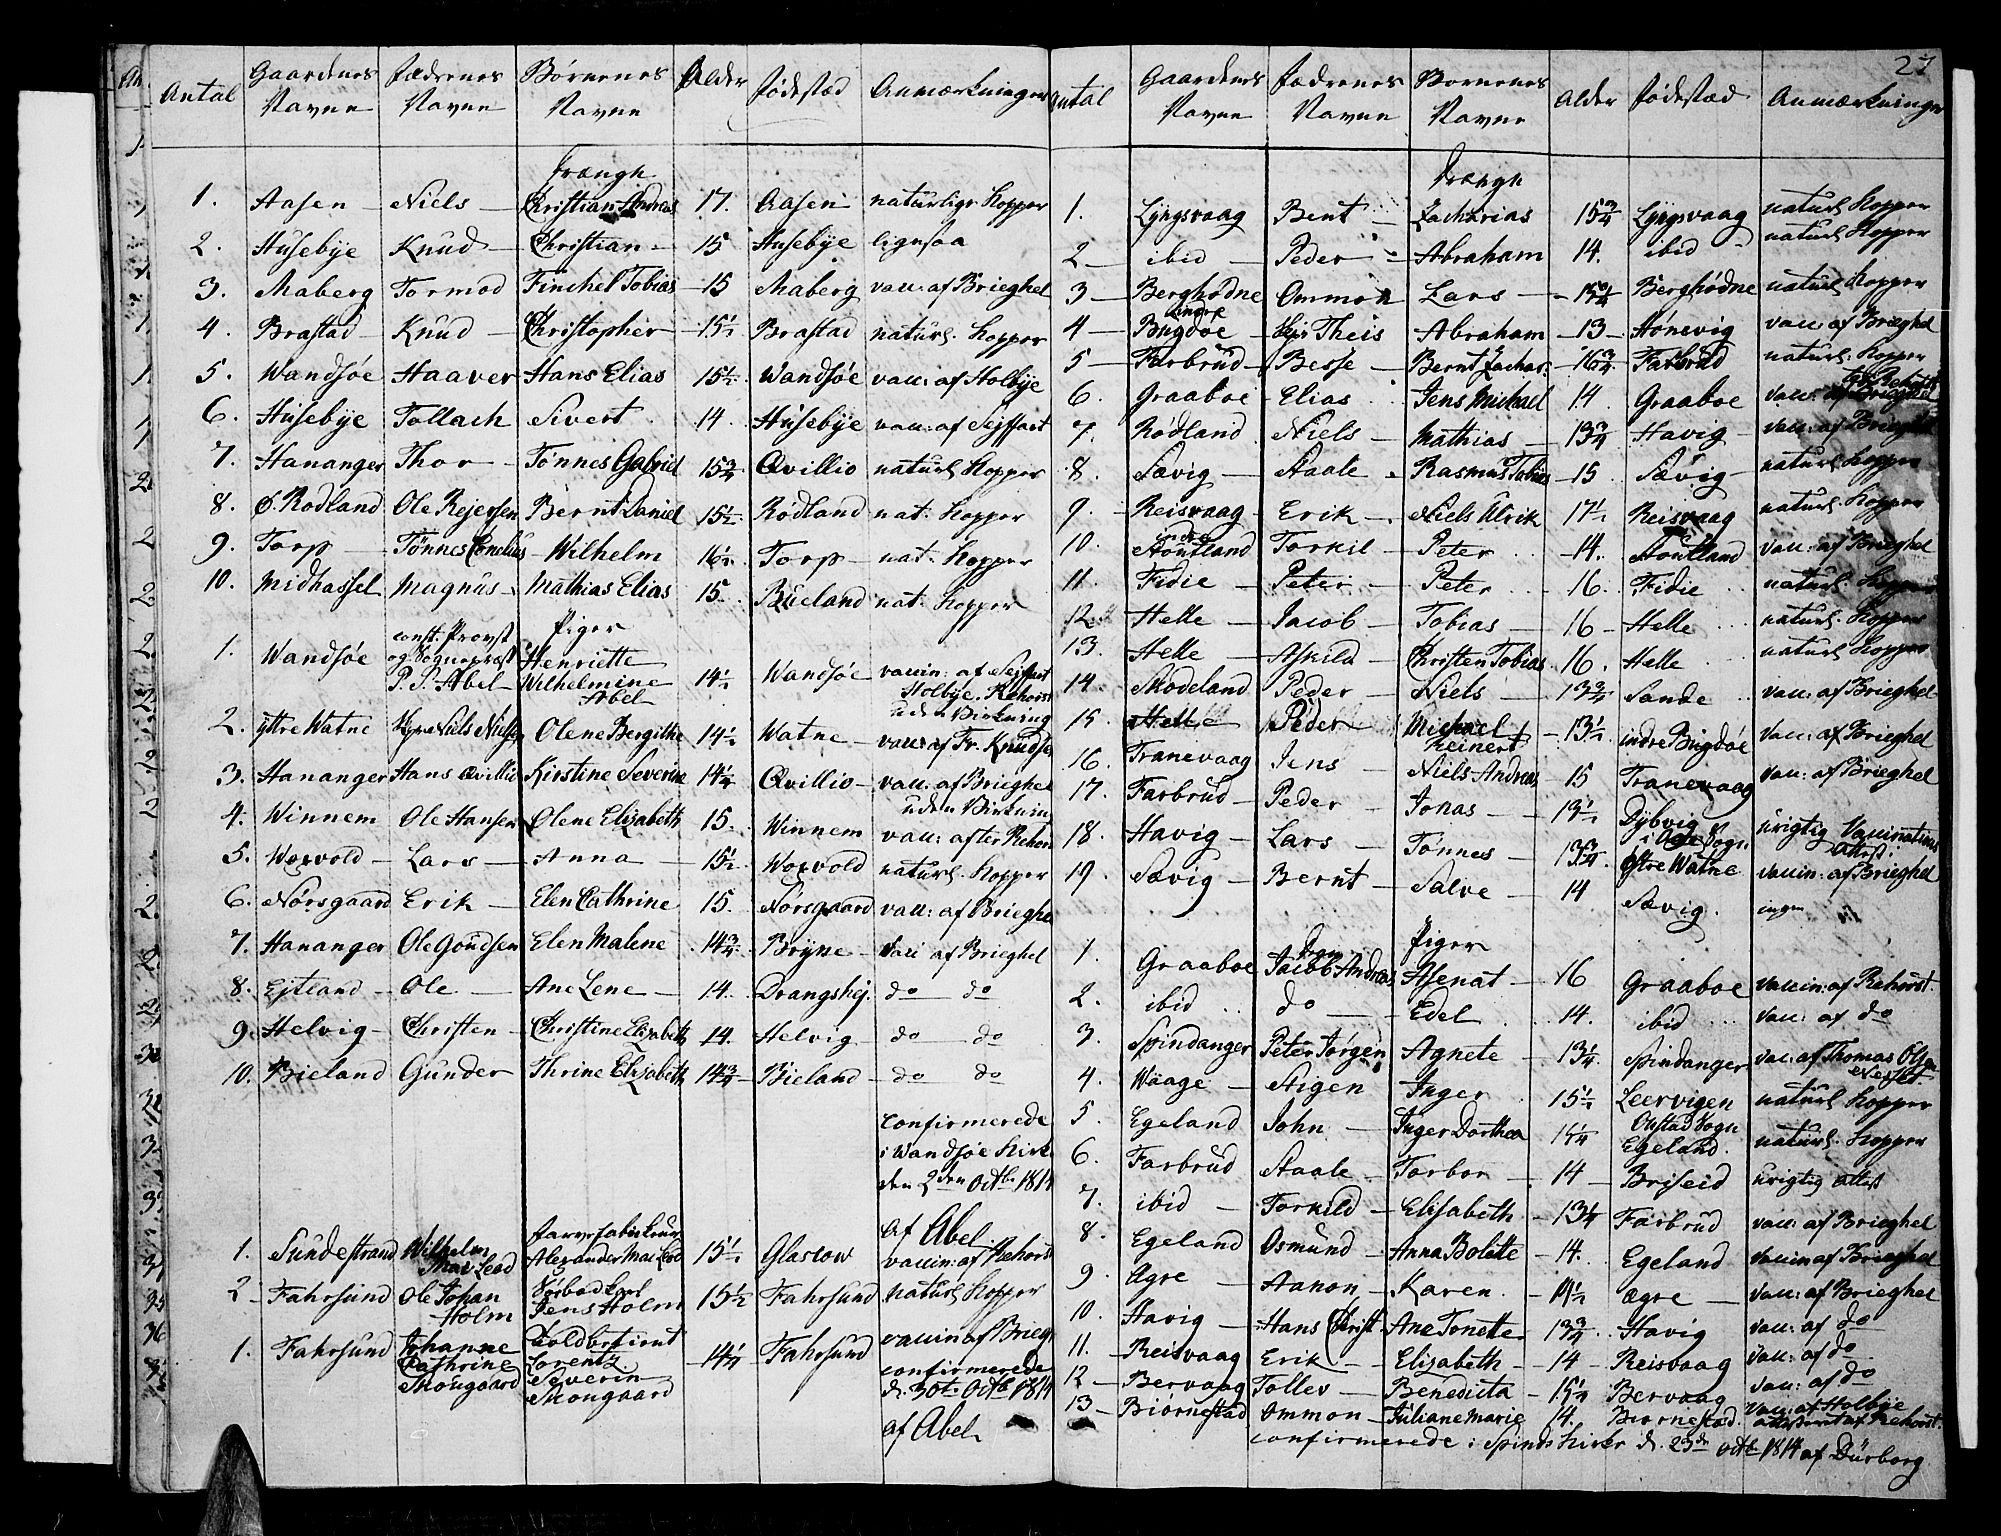 27
Antal | Gaardenes Navne | Fædrenes Navne | Børnenes Navne | Alder | Fødestæd | Anmærkninger
Drængh
1. Aasen Niels Christian Andreas 17. Aasen naturlige Kopper
2. Husebÿe Knud Christian 15 Husebÿe ligesaa
3. Maberg Tormod Finchel Tobias 15 Maberg vac: af Brieghel
4. Brastad Knud Christopher 15½ Brastad naturl. Kopper
5. Wandsøe Haaver Hans Elias 15½ Wandsøe vac: af Holbÿe
6. Husebÿe Tollach Sivert 14 Husebÿe vac: af Seÿffart
7. Hananger Thor Tønnes Gabriel 15¾ Qvillio naturl Kopper
8. Ø. Rodland Ole Rejersen Bernt Daniel 15½ Rødland nat. Kopper
9. Torp Tønnes Cornelius Wilhelm 16½ Torp nat. Kopper
10. Midhassel Magnus Mathias Elias 15. Büeland nat. Kopper
Piger
1. Wandsøe const. Provst og Sognepræst P. P. Abel Henriette Wilhelmine Abel 14½ Wandsøe vaccin: af Seÿffart
Holbÿe, Rehorst
uden Virkning
2. ÿttre Watne Niels Nielsen Olene Bergithe 14½ Watne vac: af Fr. Knudsen
3. Hananger Hans Qvillio Kirstine Severine 14½ Qvillio vac: af Brieghel
uden Virkning
4. Winnem Ole Hansen Olene Elizabeth 15. Winnem vac: after Rehorst
5. Worvold Lars Anna 15½ Worvold naturl. Kopper
6. Nørsgaard Erik Elen Cathrine 15. Norsgaard vac: af Brieghel
7. Hananger Ole Goudsen Elen Malene 14¾ Brÿne vac: af Brieghel
8. Ejtland Ole Ane Lene 14. Drangshej. do do
9. Helvig Christen Christine Elizabeth 14. Helvig do do
10. Bieland Gunder Thrine Elizabeth 14¾ Bieland do do
confirmerede
i Wandsøe Kirke
den 2den Octbr 1814
af Abel.
1. Sundestrand Wilhelm Mac Leod Alexander Mac Leod 15½ Glascow vaccin: af Rehorst
2 Fahrsund Ole Johan Holm Jens Holm 15½ Fahrsund naturl Kopper
1. Fahrsund Johanne Cathrine Mougaard Lorentz Severin Mougaard 14¼ Fahrsund vaccin af Brieg
confirmerede
d. 30te Octbr 1814
af Abel
Antal | Gaardenes Navne | Fædrenes Navne | Børnenes Navne | Alder | Fødestæd | Anmærkninger
Drængh
1. Lÿngsvaag Bent Zacharias 15¾ Lÿngsvaag naturl Kopper
2 ibid Peder Abraham 14. ibid naturl Kopper
3 Berghødne Ommon Lars Berghødne naturl Kopper
4 indre Bugdøe Theis Abraham 13 Hønevig vac: af Brieghel
5 Farbrud Besse Bernt Zachar. 16¾ Farbrud naturl. Kopper
6. Graaboe Elias Jens Michael 14 Graaboe vac:
7. Rødland Niels Mathias 13¾ Havig vac: af Brieghel
8. Sævig Staale Rasmus Tobias 15 Sævig naturl Kopper
9. Reisvaag Erik Niels Ulrik 17½ Reisvaag naturl Kopper
10. indre Stoutland Torkil Peter 14. Stoutland vac: af Brieghel
11. Fidie Peter Peter 16. Fidie naturl Kopper
12. Helle Jacob Tobias 16 Helle naturl. Kopper
13. Helle Askild Christen Tobias 16. Helle naturl Kopper
14. Modeland Peder Niels 13¾ Sande vac: af Brieghel
15 Helle Peder Michael Reinert 13½ indre Bugdøe vac: af Brieghel
16. Tranevaag Jens Niels Andreas 15 Tranevaag vac: af Brieghel
17. Farbrud Peder Jonas 13½ Dÿbvig i Sogn urigtig Vaccinations Attest
18. Havig Lars Tønnes 13¾ ÿttre Watne vaccin: af Brieghel
19. Sævig Bernt Salve 14 Sævig. ingen
Piger
1. Graaboe Jacob Andreas Asenat 16 Graaboe vaccin: af Rehorst.
2. ibid do Edel 14. ibid vac: af do
3. Spindanger Peter Jørgen Agnete 13¼ Spindanger vac: af Thomas Olsen
4. Waage Stigen Inger 15½ Leervigen naturl Kopper
5. Egeland John Inger Dorthea 15¼ Egeland. naturl. Kopper
6. Farbrud Staale Torbor 14 Briseid urigtig attest
7. ibid Torkild Elisabeth 13¼ Farbrud vac: af Brieghel
8. Egeland Osmund Anna Bolette 14. Egeland vaccin af Brieghel
9. Agre Aanon Karen 14½ Ægre vac: af Brieghel
10. Havig Hans Christ. Ane Tonette 13¾ Havig vac: af do
11. Reisvaag Erik Elizabeth 14 Reisvaag vac: af do
12 Bervaag Tollev Benedicta 15¼ Bervaag vac: af do
13 Biørnestad Ommon Juliane Marie 14. Biørnestad. vac: af Holbÿe
attesteret af Rehorst.
confirmerede i Spinds Kirke d. 23de Octbr 1814 af Dürborg